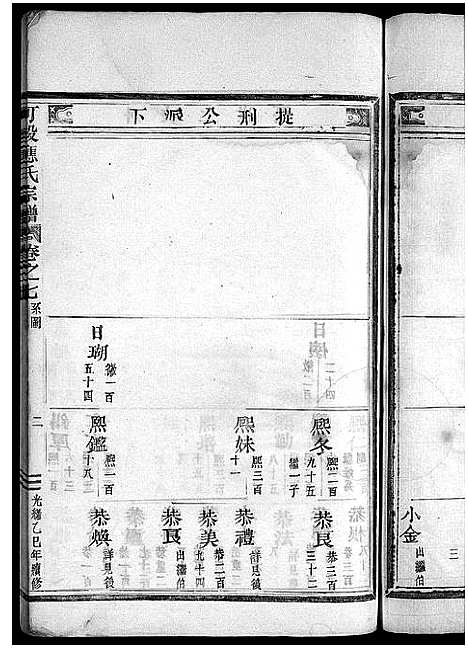 提刑公派下
小金
出繼伯
三
熙冬
熙一百
九十五
繼一子
恭良
恭二百
三十二
熙妹
熙三百
十一
恭禮
詳見後
恭美
恭二百
九十四
恭良
出繼伯
日瑚
徽一百
五十四
熙鑑
熙一百
十八
恭煥
詳見後
應氏宗譜
卷之七
系圖
二
光緒乙巳年續修